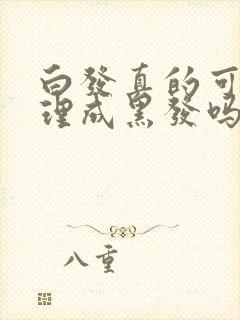 白發真的可
理成黑發吗
八重